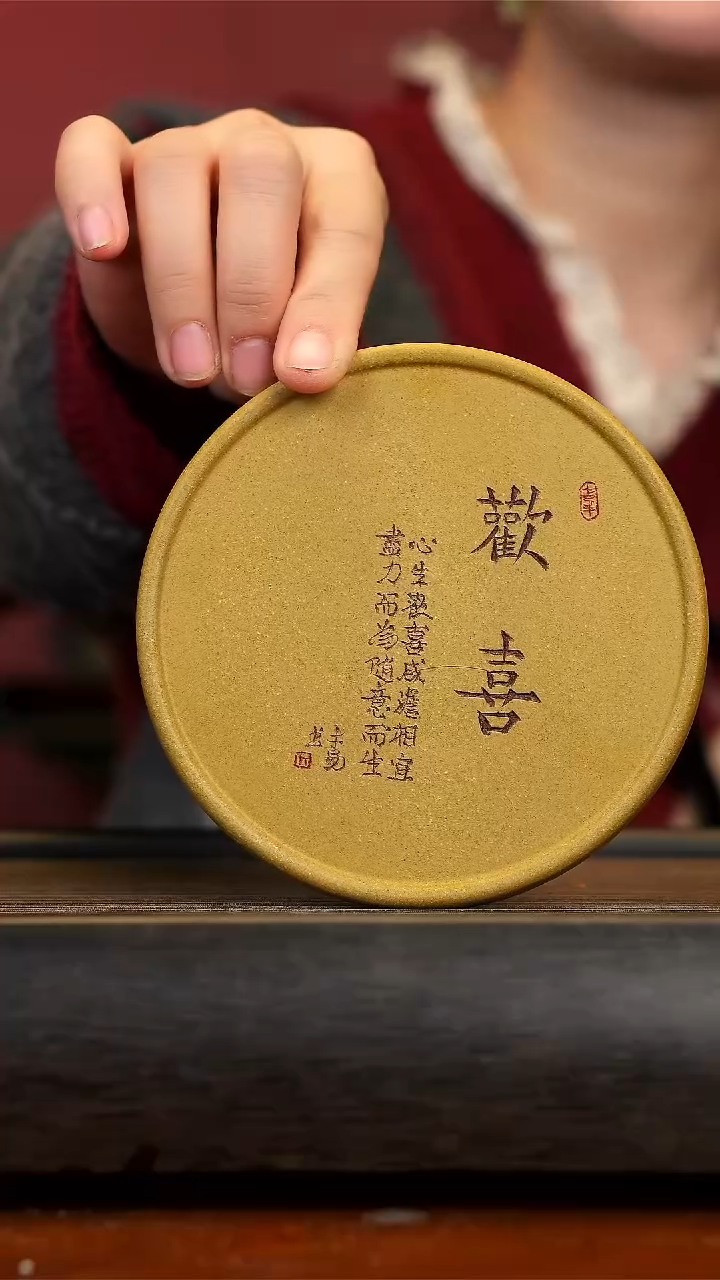 歡喜
心生歡喜咸澹相宜
盡力而為隨意而生